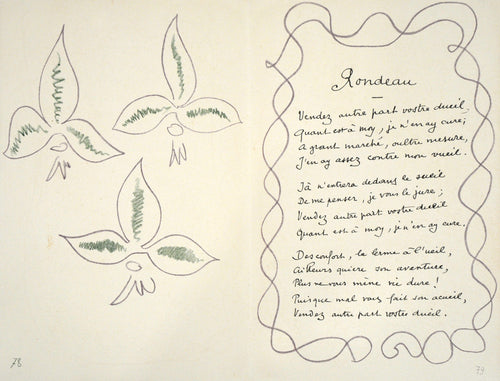 Rondeau
Vendez autre part vostre dueil
Quant est à moy, je n'en ay cure;
A grant marché, oultre mesure,
J'en ay assez contre mon vueil.
Jà n'entrera dedans le sueil
De me penser, je vous le jure;
Vendez autre part vostre dueil
Quant est à moy, je n'en ay cure.
Desconfort, la lerme à l'ueil,
Ailleurs quière son aventure,
Plus ne vous mène vie dure!
Puisque mal vous fait son acueil,
Vendez autre part vostre dueil.
78
79